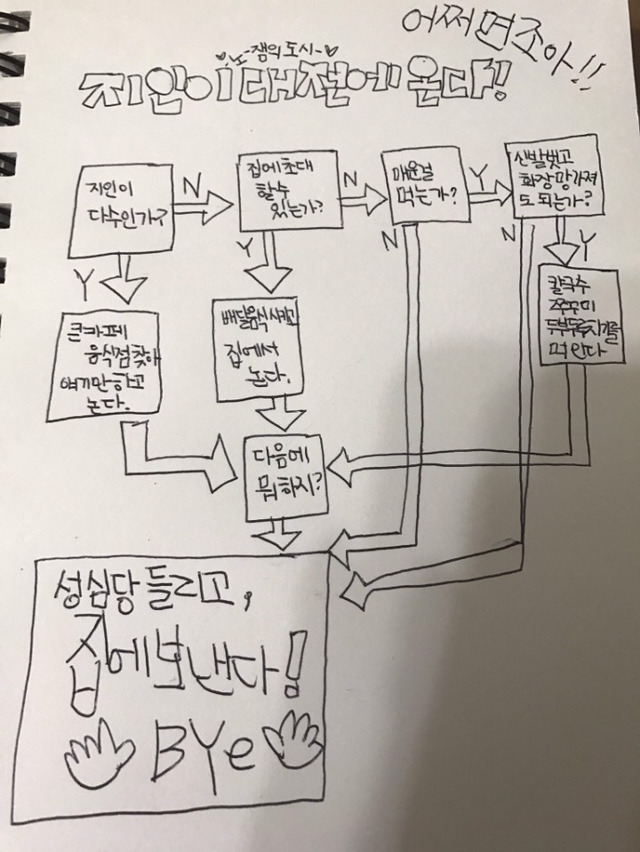 어쩌면조아!!
노-잼의 도시-
지인이 대전에 온다!
지인이
다수인가?
N
Y
집에초대
할수
있는가?
N
Y
매운걸
먹는가?
Y
N
신발벗고
화장 망가져
도 되는가?
N
Y
큰카페
음식점찾아
얘기만하고
논다.
배달음식시키고
집에서
논다.
칼국수
쭈꾸미
두부두루치기를
먹인다
다음에
뭐하지?
성심당 들리고,
집에보낸다!
BYe